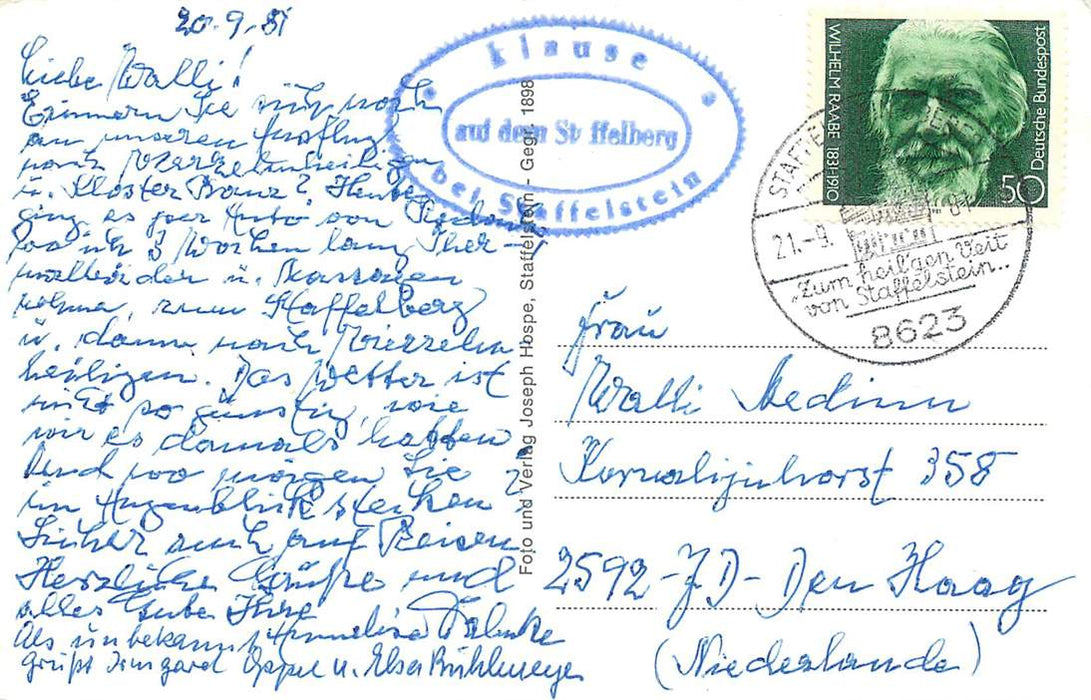 20.9.81
Liebe Walli!
Erinnern Sie sich noch
an unseren Ausflug
nach Vierzehnheiligen
u. Kloster Banz? Heute
ging es per Auto von
wo ich 3 Wochen lang Ther-
malbäder u. Massagen
nehme, zum Staffelberg
u. dann nach Vierzehn
heiligen. Das Wetter ist
nicht so günstig, wie
wir es damals hatten
Und wo mögen Sie
im Augenblick stecken?
Sicher auch auf Reisen
Herzliche Grüße und
alles Gute Ihre
Annelise
Als unbekannt
grüßt Irmgard Oppel u. Elsa Bühlmeyer
Klause
auf dem St ffelberg
bei Staffelstein
Foto und Verlag Joseph Hospe, Staffelstein - Gegr. 1898
WILHELM RAABE 1831-1910
Deutsche Bundespost
50
STAFFE
21.-9.
"Zum heil'gen Veit
von Staffelstein..
8623
Frau
Walli
358
2592-JD-Den Haag
(Niederlande)